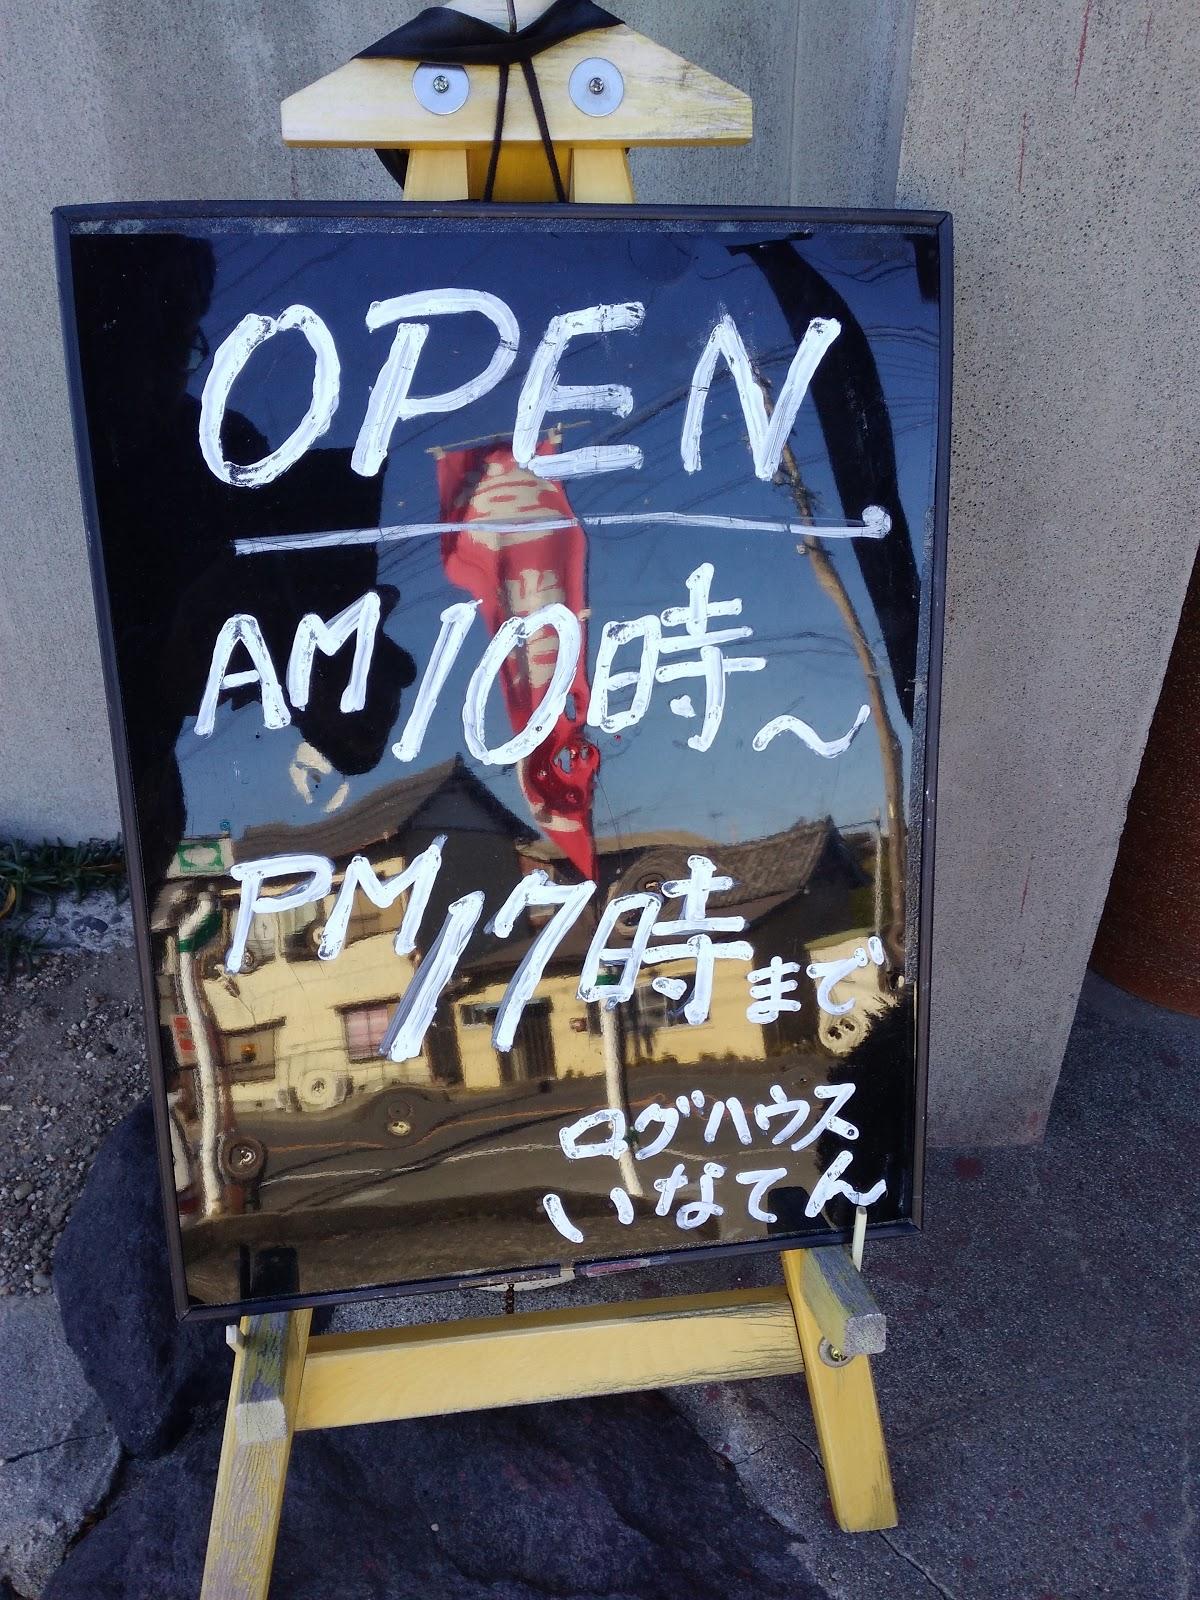 OPEN
AM10時〜
PM17時まで
ログハウス
いなてん